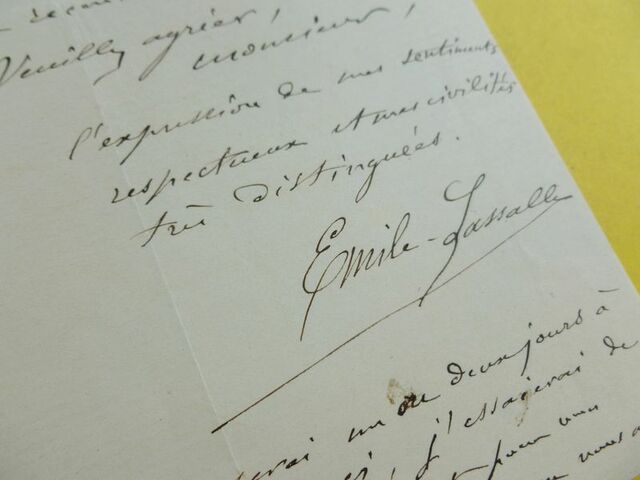 Veuillez agréer, monsieur,
l'expression de mes sentiments
respectueux et mes civilités
très distinguées.
Emile-Lassalle
un ou deux jours à
j'essaierai de
pour vous